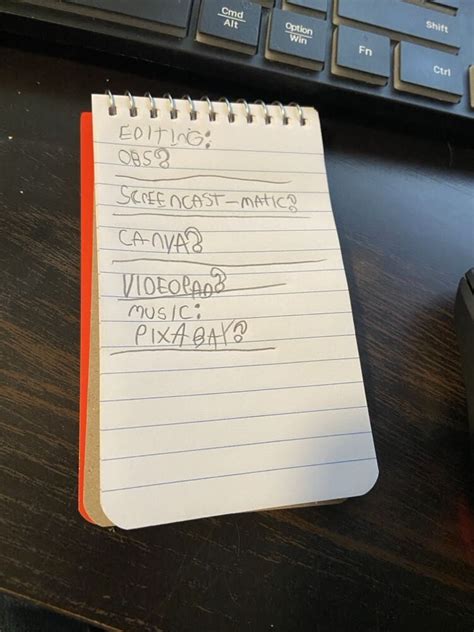 Cmd
Alt
Option
Win
Fn
Shift
Ctrl
EDITING:
OBS?
SCREENCAST-MATIC?
CANVA?
VIDEOPAD?
MUSIC:
PIXABAY?